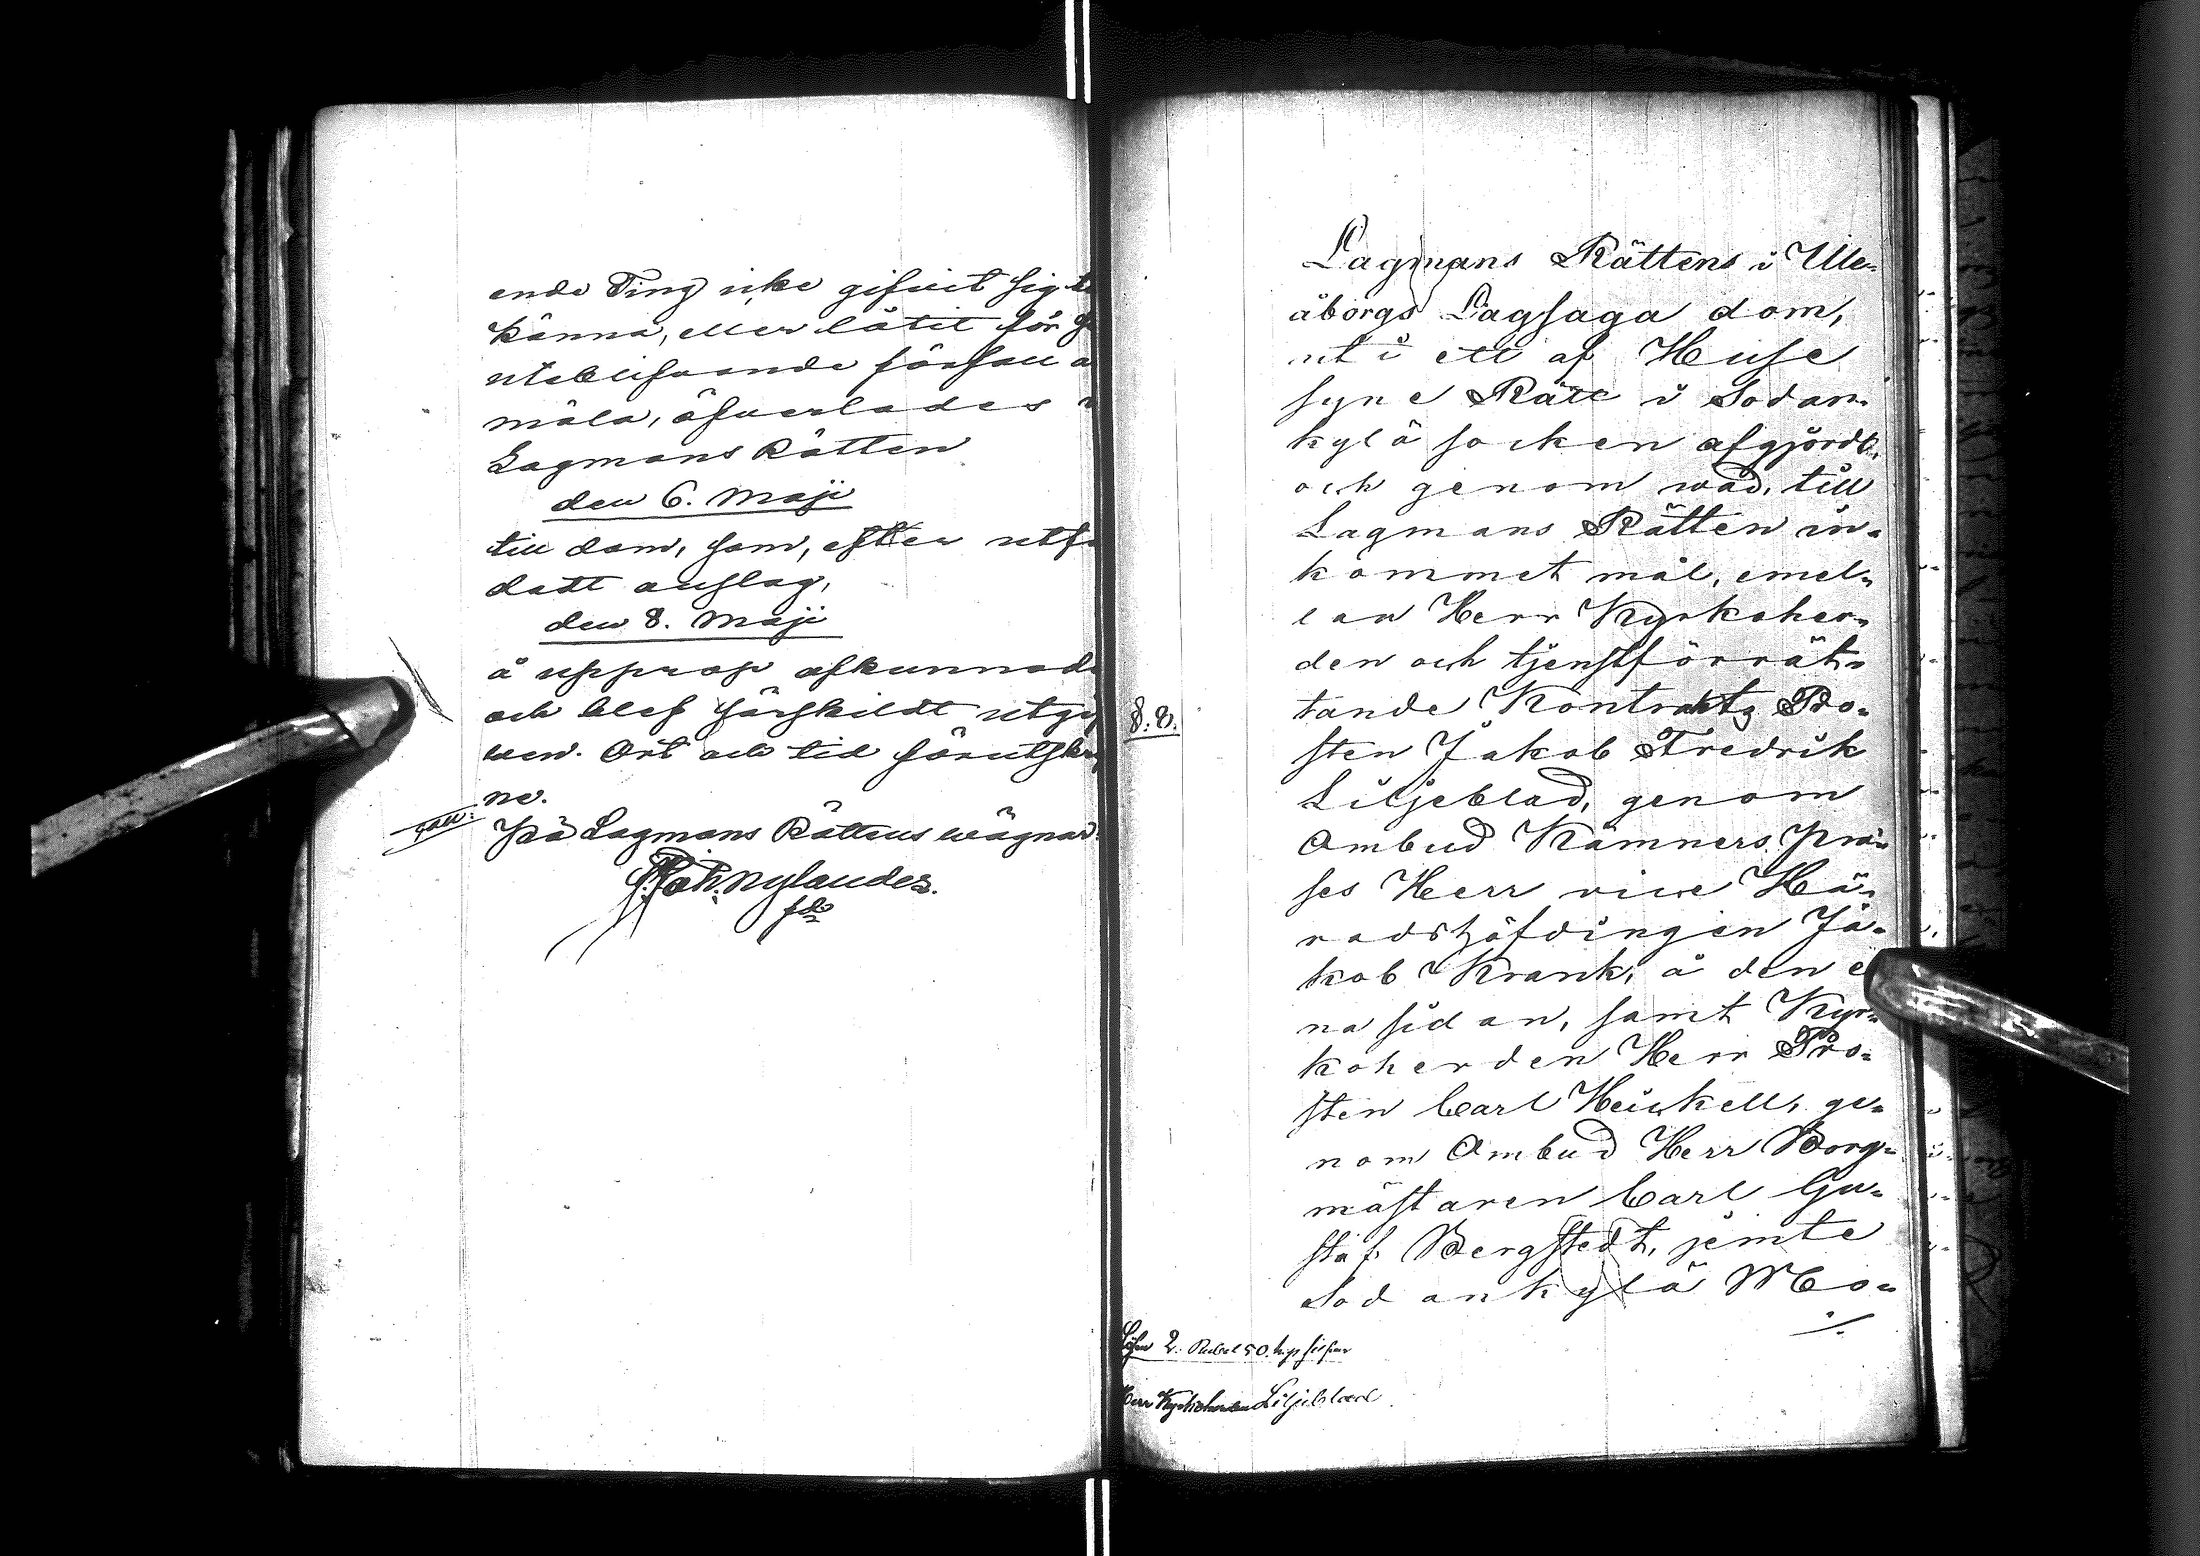 ende Ting icke gifvit sig
känna, eller låtit för
uteblifvande förfall
mäla, öfverlades
Lagmans Rätten
den 6. Maji
till dom, som, efter
datt anslag,
den 8. Maji
å upprop afkunnade
och blef särskildt
wen. Ort och tid förutskr
ne.
På Lagmans Rättens wägnar.
Joh. Nylander.
Lagmans Rättens i Ule-
åborgs Lagsaga dom,
uti ett af Huse
syne Rätt i Sodan-
kylä socken afgjordt,
och genom wad, till
Lagmans Rätten in-
kommet mål, emel-
lan Herr Kyrkoher-
den och tjenstförrät-
tande Kontrakts Pro-
sten Jakob Fredrik
Liljeblad, genom
Ombud Kämners Præ-
ses Herr vice Hä-
radshöfdingen Ja-
kob Krank, å den e
na sidan, samt Kyr-
koherden Herr Pro-
sten Carl Heickell, ge-
nom Ombud Herr Borg-
mästaren Carl Gu-
staf Bergstedt, jemte
Sodankylä Mo-
./.
8.8.
Lösen 2. Rubel 50. kop silfver
Herr Kyrkoherden Liljeblad